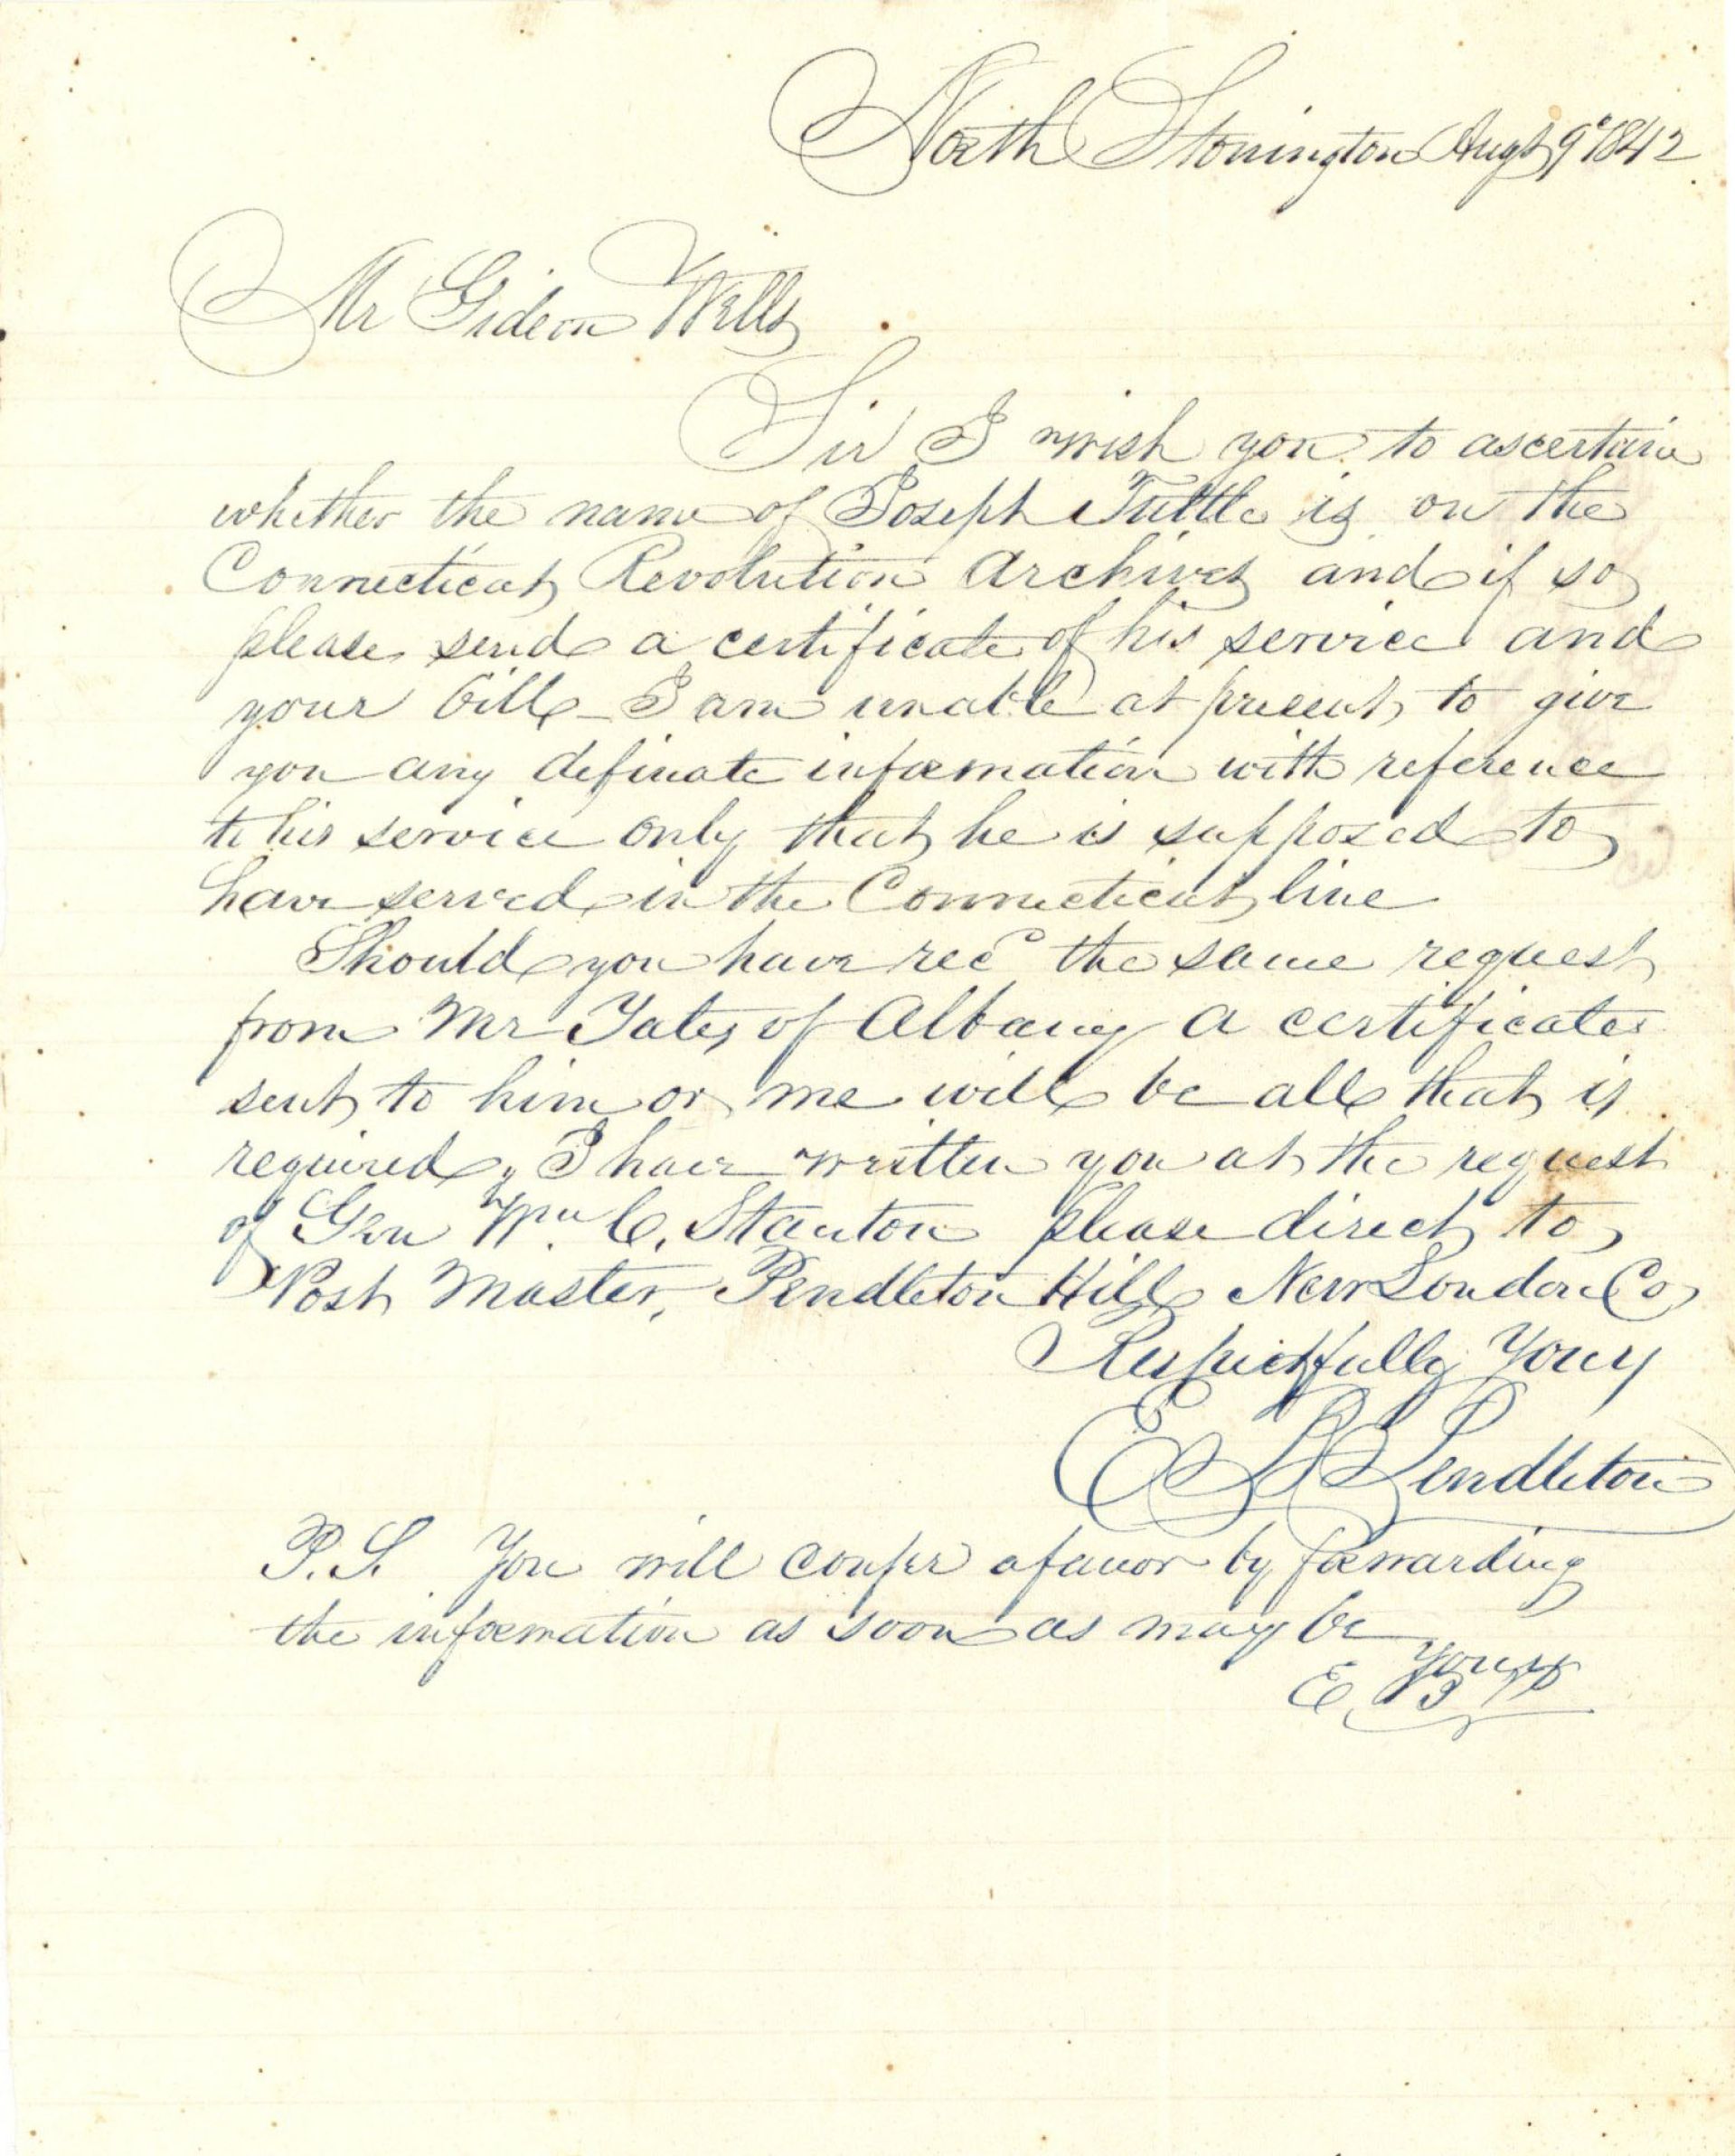 North Stonington Augt 9th 1842
Mr Gideon Wells
Sir I wish you to ascertain
whether the name of Joseph Tuttle is on the
Connecticut Revolution Archives and if so
please send a certificate of his service and
your bill I am unable at present to give
you any definate information with reference
to his service only that he is supposed to
have served in the Connecticut line
Should you have recd the same request
from Mr Yates of Albany a certificate
sent to him or me will be all that is
required, I have written you at the request
of Gen Wm C. Stanton please direct to
Post Master, Pendleton Hill New London Co
Respectfully Yours
E Pendleton
P.S. You will confer a favor by forwarding
the information as soon as may be
yours
E